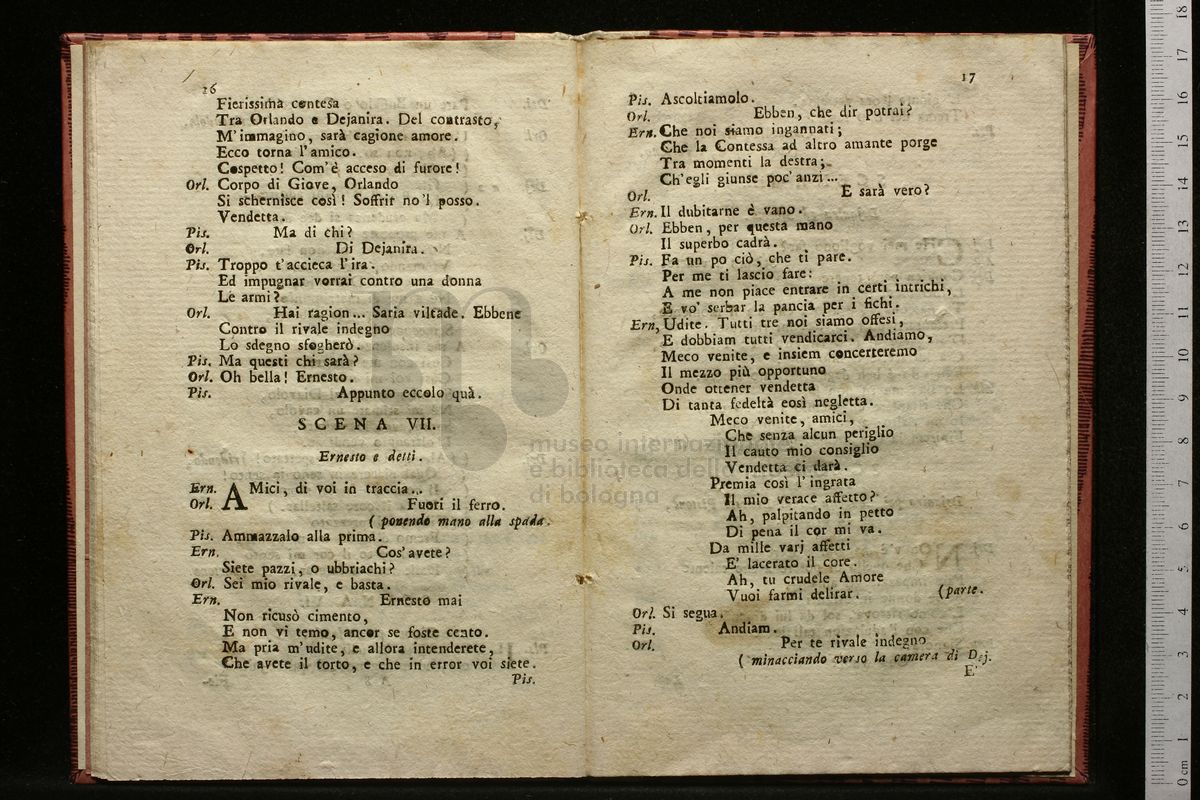 16
Fierissima contesa
Tra Orlando e Dejanira. Del contrasto,
M'immagino, sarà cagione amore.
Ecco torna l'amico.
Cospetto! Com'è acceso di furore!
Orl. Corpo di Giove, Orlando
Si schernisce così! Soffrir no'l posso.
Vendetta.
Pis. Ma di chi?
Orl. Di Dejanira.
Pis. Troppo t'accieca l'ira.
Ed impugnar vorrai contro una donna
Le armi?
Orl. Hai ragion... Saria viltade. Ebbene
Contro il rivale indegno
Lo sdegno sfogherò.
Pis. Ma questi chi sarà?
Orl. Oh bella! Ernesto.
Pis. Appunto eccolo quà.
SCENA VII.
Ernesto e detti.
Ern. AMici, di voi in traccia...
Orl. Fuori il ferro.
( ponendo mano alla spada.
Pis. Ammazzalo alla prima.
Ern. Cos'avete?
Siete pazzi, o ubbriachi?
Orl. Sei mio rivale, e basta.
Ern. Ernesto mai
Non ricusò cimento,
E non vi temo, ancor se foste cento.
Ma pria m'udite, e allora intenderete,
Che avete il torto, e che in error voi siete.
Pis.
17
Pis. Ascoltiamolo.
Orl. Ebben, che dir potrai?
Ern. Che noi siamo ingannati;
Che la Contessa ad altro amante porge
Tra momenti la destra;
Ch'egli giunse poc'anzi...
Orl. E sarà vero?
Ern. Il dubitarne è vano.
Orl. Ebben, per questa mano
Il superbo cadrà.
Pis. Fa un po ciò, che ti pare.
Per me ti lascio fare:
A me non piace entrare in certi intrichi,
E vo' serbar la pancia per i fichi.
Ern, Udite. Tutti tre noi siamo offesi,
E dobbiam tutti vendicarci. Andiamo,
Meco venite, e insiem concerteremo
Il mezzo più opportuno
Onde ottener vendetta
Di tanta fedeltà eosì negletta.
Meco venite, amici,
Che senza alcun periglio
Il cauto mio consiglio
Vendetta ci darà.
Premia così l'ingrata
Il mio verace affetto?
Ah, palpitando in petto
Di pena il cor mi va.
Da mille varj affetti
E' lacerato il core.
Ah, tu crudele Amore
Vuoi farmi delirar. (parte.
Orl. Si segua.
Pis. Andiam.
Orl. Per te rivale indegno
( minacciando verso la camera di Dej.
E'
museo internazionale
e biblioteca della
di bologna
0 cm 1 2 3 4 5 6 7 8 9 10 11 12 13 14 15 16 17 18